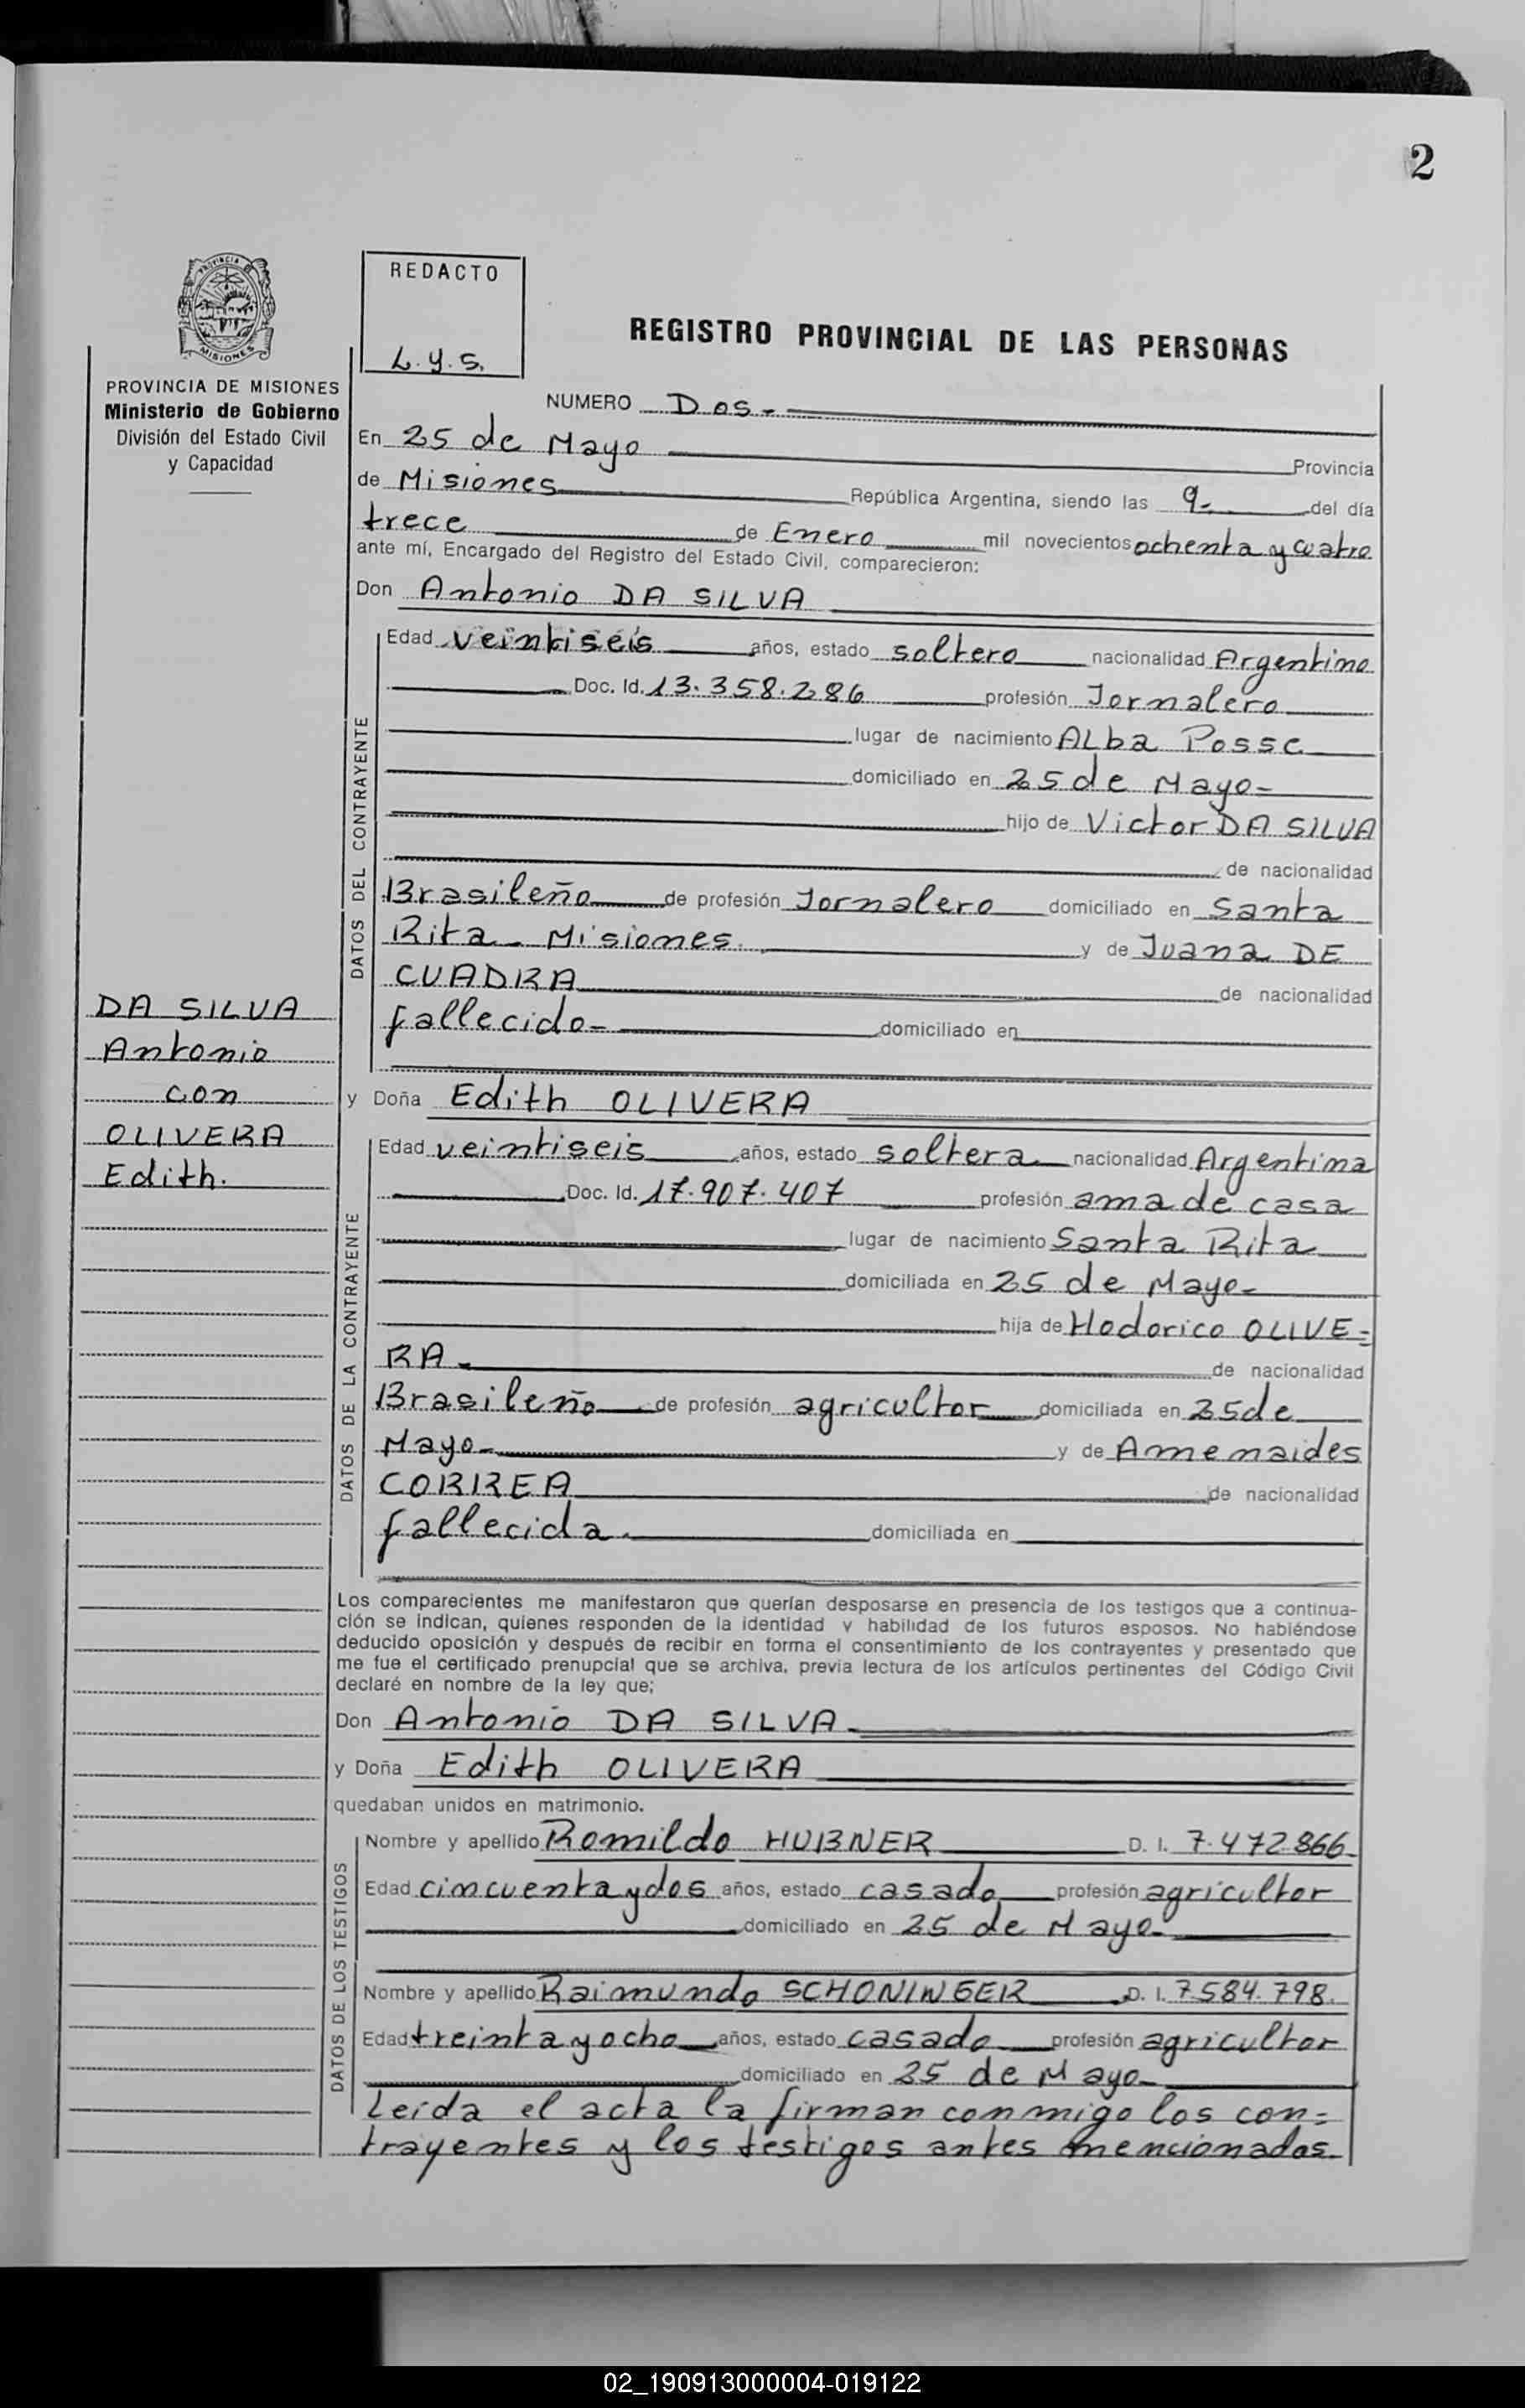 2
PROVINCIA DE
MISIONES
REDACTO
L.y.s.
REGISTRO PROVINCIAL DE LAS PERSONAS
PROVINCIA DE MISIONES
Ministerio de Gobierno
División del Estado Civil
y Capacidad
NUMERO Dos.-
En 25 de Mayo Provincia
de Misiones República Argentina, siendo las 9- del día
trece de Enero mil novecientos ochenta y cuatro
ante mí, Encargado del Registro del Estado Civil, comparecieron:
Don Antonio DA SILVA
DATOS DEL CONTRAYENTE
Edad veintiseis años, estado soltero nacionalidad Argentino
Doc. Id. 13.358.286 profesión Jornalero
lugar de nacimiento ALba Posse
domiciliado en 25 de Mayo-
hijo de Victor DA SILVA
de nacionalidad
Brasileño de profesión Jornalero domiciliado en Santa
Rita - Misiones. y de Juana DE
CUADRA de nacionalidad
fallecido- domiciliado en
DA SILVA
Antonio
con
OLIVERA
Edith.
y Doña Edith OLIVERA
DATOS DE LA CONTRAYENTE
Edad veintiseis años, estado soltera nacionalidad Argentina
Doc. Id. 17.907.407 profesión ama de casa
lugar de nacimiento Santa Rita
domiciliada en 25 de Mayo-
hija de Hodorico OLIVE=
RA- de nacionalidad
Brasileño de profesión agricultor domiciliada en 25 de
Mayo- y de Amenaides
CORREA de nacionalidad
fallecida. domiciliada en
Los comparecientes me manifestaron que querían desposarse en presencia de los testigos que a continua-
ción se indican, quienes responden de la identidad y habilidad de los futuros esposos. No habiéndose
deducido oposición y después de recibir en forma el consentimiento de los contrayentes y presentado que
me fue el certificado prenupcial que se archiva, previa lectura de los artículos pertinentes del Código Civil
declaré en nombre de la ley que;
Don Antonio DA SILVA-
y Doña Edith OLIVERA
quedaban unidos en matrimonio.
DATOS DE LOS TESTIGOS
Nombre y apellido Romildo HUBNER D. I. 7.472.866-
Edad cincuenta y dos años, estado casado profesión agricultor
domiciliado en 25 de Mayo-
Nombre y apellido Raimundo SCHONINGER D. I. 7.584.798.
Edad treinta y ocho años, estado casado profesión agricultor
domiciliado en 25 de Mayo-
Leída el acta la firman conmigo los con=
trayentes y los testigos antes mencionados.
02_190913000004-019122